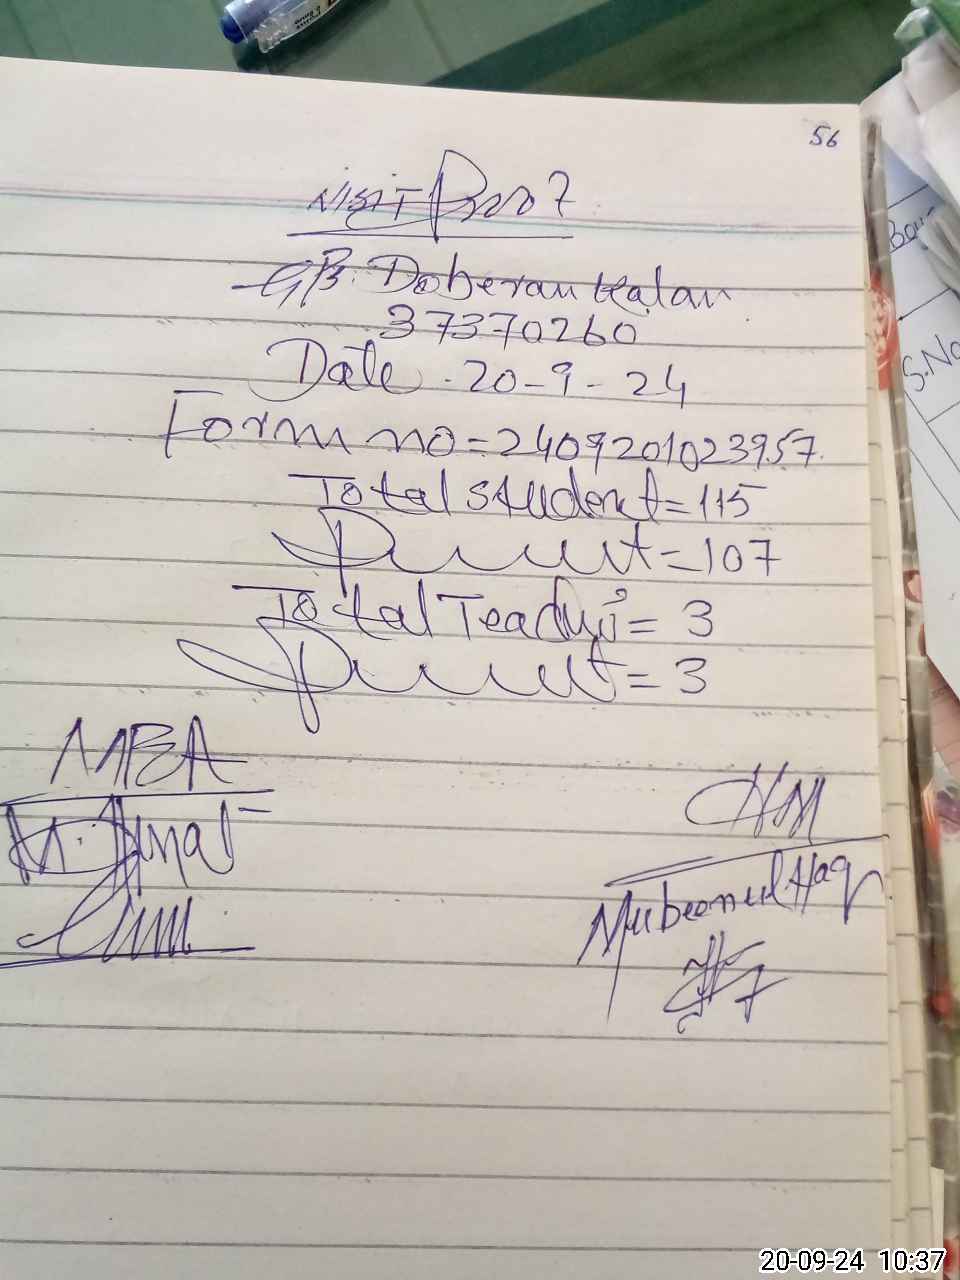 56
Visit Proof
GPS. Doberan Kalan
37370260
Date . 20-9-24
Form no = 2409201023957
Total student = 115
Present = 107
Total Teacher = 3
Present = 3
MEA
HM
M. Ajmal
Mubeenul Haq
Bou
S.No
20-09-24 10:37